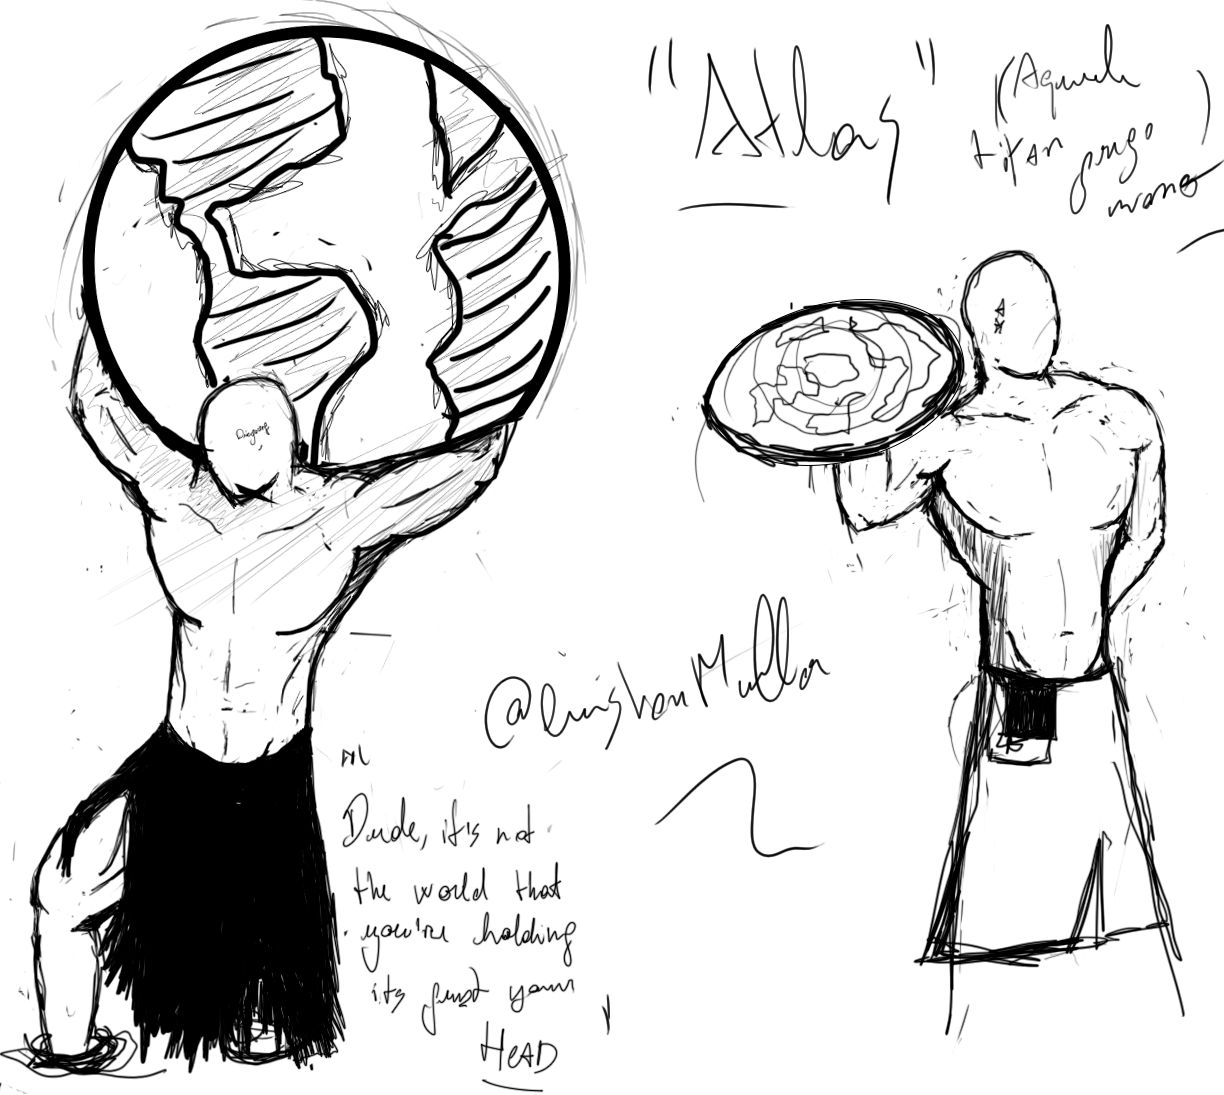 "Atlas"
(Aquele
titan grego
mano)
@luishenMulla
Dude, it's not
the world that
you're holding
its just your
HEAD